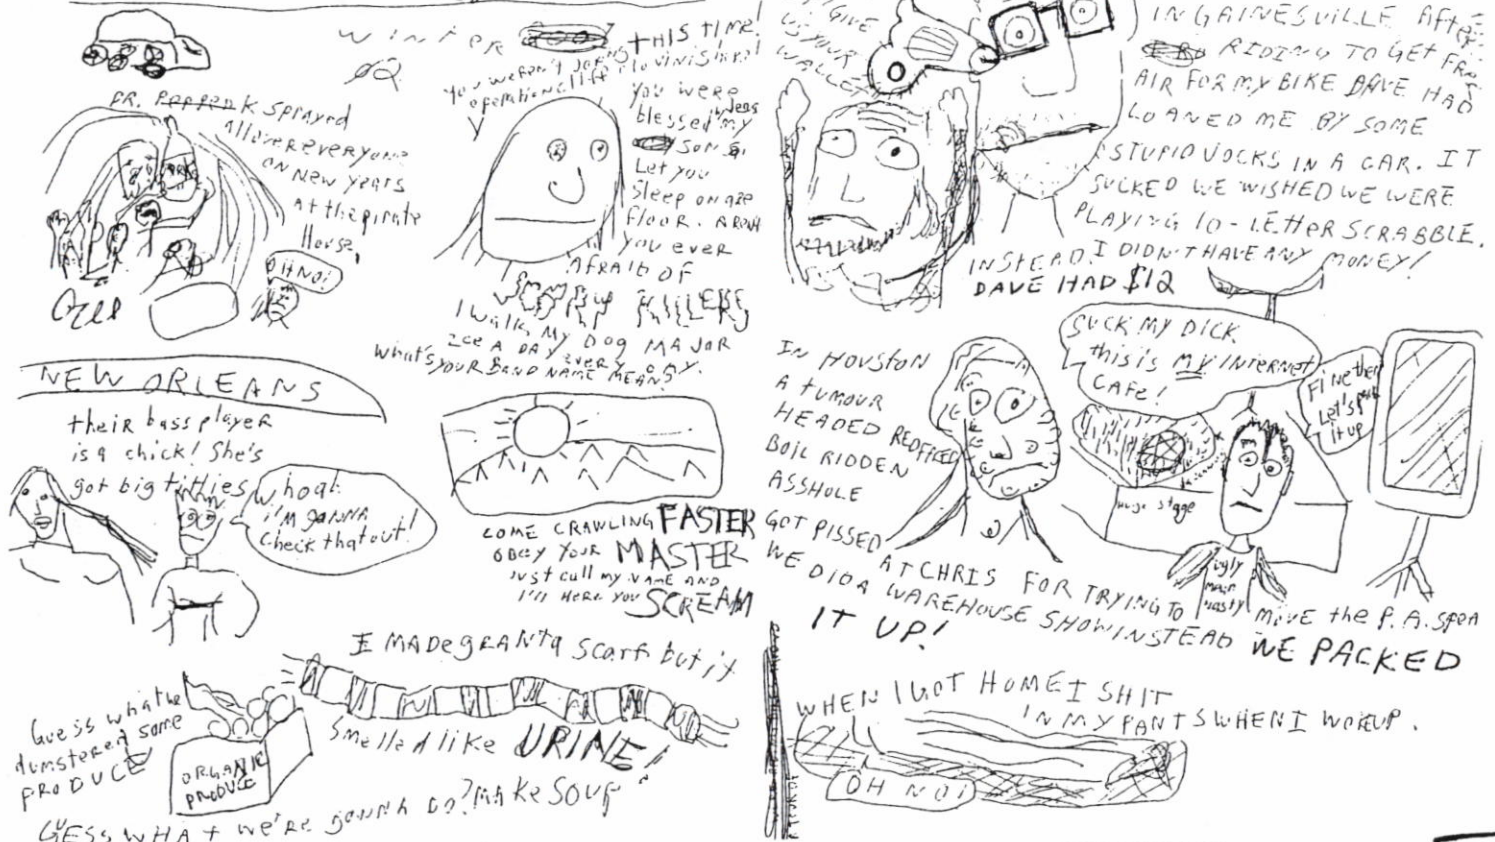 WINTER
02
THIS TIME!
DR. PEPPER K SPRAYED
all over everyone
ON NEW YEARS
AT the pirate
House,
OH NO!
you were
blessed
my
SON
Let you
Sleep on
floor. A
you ever
AFRAID OF
KILLERS
I WALK MY DOG MAJOR
2ce A DAY EVERY DAY.
WHAT'S YOUR BAND NAME MEAN?
NEW ORLEANS
their bass player
is a chick! She's
got big titties
Whoah
i'm gonna
check that out!
COME CRAWLING FASTER
OBEY YOUR MASTER
JUST CALL MY NAME AND
I'll HERE YOU SCREAM
I MADE GRANT A scarf but it
Smelled like URINE!
Guess what we
dumstered some
PRODUCE
ORGANIC
PRODUCE
GUESS WHAT WE'RE gonna DO? MAKE SOUP
GIVE
US YOUR
WALLET
IN GAINESVILLE AFTER
RIDING TO GET FREE
AIR FOR MY BIKE DAVE HAD
LOANED ME BY SOME
STUPID JOCKS IN A CAR. IT
SUCKED WE WISHED WE WERE
PLAYING 10-LETTER SCRABBLE.
INSTEAD. I DIDN'T HAVE ANY MONEY!
DAVE HAD $12
IN HOUSTON
A TUMOUR
HEADED
BOIL RIDDEN
ASSHOLE
GOT PISSED
AT CHRIS FOR TRYING TO MOVE the P.A. SPEA
WE DID A WAREHOUSE SHOW INSTEAD WE PACKED
IT UP!
SUCK MY DICK.
this is MY INTERNET
CAFE!
Fine then
Let's
it up
stage
ugly
mean
nasty
WHEN I GOT HOME I SHIT
IN MY PANTS WHEN I WOKE UP.
OH NO!